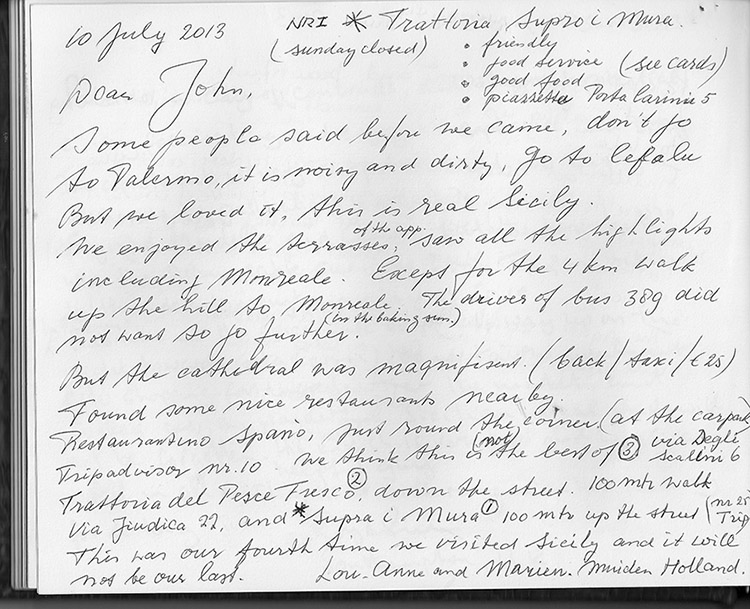 10 July 2013 NR1 * Trattoria Supra i Mura.
(sunday closed) • friendly
• food service (see cards)
• good food
• piazzetta Porta Carini 5
Dear John,
Some people said before we came, don't go
to Palermo, it is noisy and dirty, go to Cefalu
But we loved it, this is real Sicily.
We enjoyed the terrasses, of the app. saw all the highlights
including Monreale. Except for the 4 km walk
up the hill to Monreale (in the baking sun.) The driver of bus 389 did
not want to go further.
But the cathedral was magnifisent. (back/taxi/€25)
Found some nice restaurants nearby.
Restaurantino Spanò, just round the corner (at the carpark)
Tripadvisor nr. 10. We think this is (not) the best of ③ via Degli Scalini 6
Trattoria del Pesce Fresco ②, down the street. 100 mtr walk
via Judica 22, and * Supra i Mura ① 100 mtr up the street (nr 25 Trip
This was our fourth time we visited Sicily and it will
not be our last. Lou-Anne and Marien. Muiden Holland.